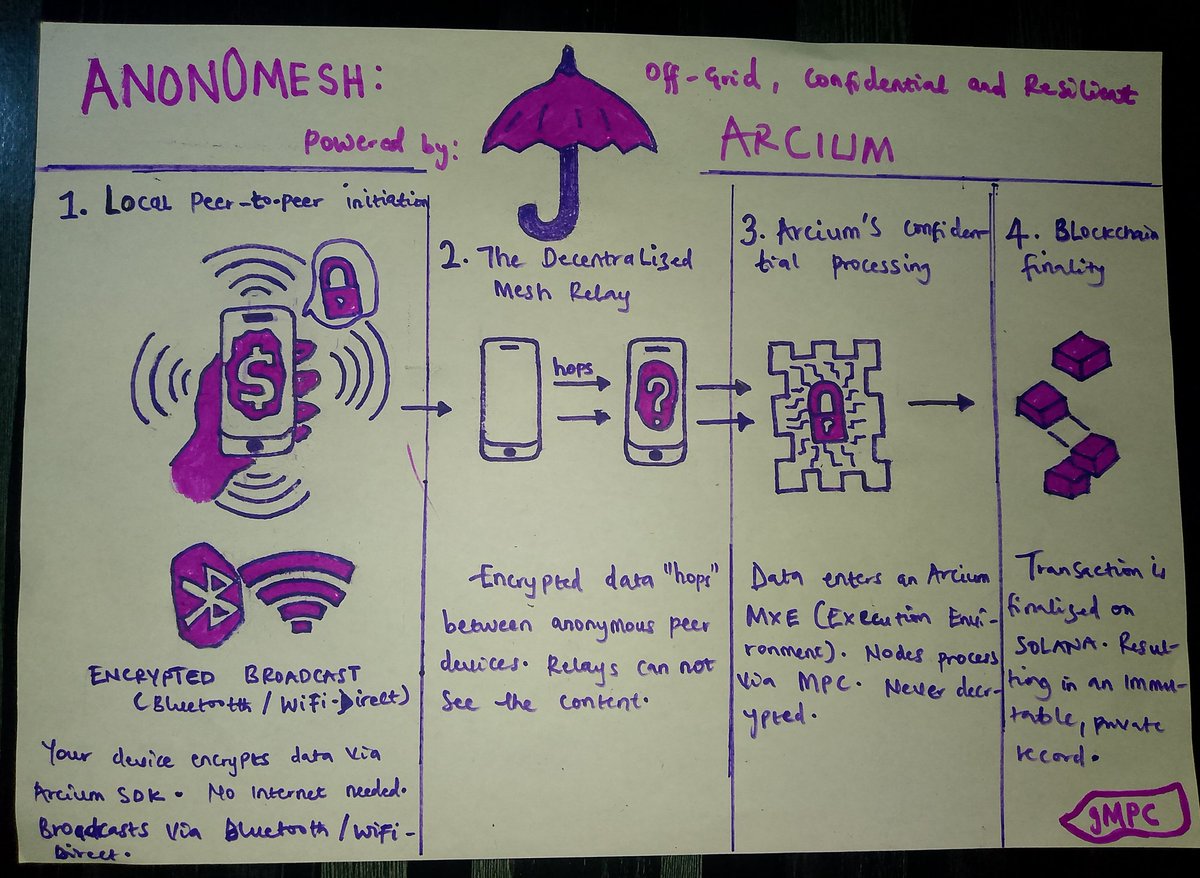 ANONOMESH:
Off-Grid, Confidential and Resilient
Powered by:
ARCIUM
1. Local Peer-to-peer initiation
$
ENCRYPTED BROADCAST
(Bluetooth / WiFi-Direct)
Your device encrypts data via
Arcium SDK. No Internet needed.
Broadcasts via Bluetooth / WiFi-
Direct.
2. The Decentralized
Mesh Relay
hops
?
Encrypted data "hops"
between anonymous peer
devices. Relays can not
see the content.
3. Arcium's confiden-
tial processing
Data enters an Arcium
MXE (Execution Envi-
ronment). Nodes process
via MPC. Never decr-
ypted.
4. Blockchain
finality
Transaction is
finalized on
SOLANA. Resul-
ting in an immu-
table, private
record.
gMPC